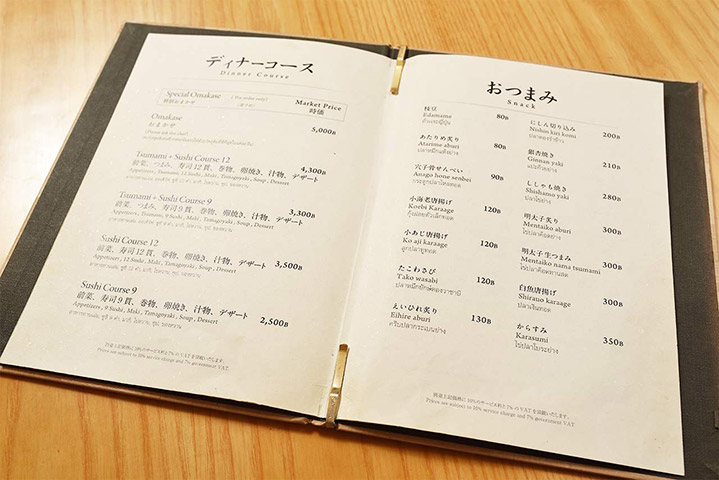 ディナーコース
Dinner Course
Special Omakase
特別おまかせ
Market Price
時価
Omakase
おまかせ
5,000B
Tsumami + Sushi Course 12
4,300B
前菜、つまみ、寿司12貫、巻物、卵焼き、汁物、デザート
Appetizers, Tsumami, 12 Sushi, Maki, Tamagoyaki, Soup, Dessert
Tsumami + Sushi Course 9
3,300B
前菜、つまみ、寿司9貫、巻物、卵焼き、汁物、デザート
Appetizers, Tsumami, 9 Sushi, Maki, Tamagoyaki, Soup, Dessert
Sushi Course 12
前菜、寿司12貫、巻物、卵焼き、汁物、デザート 3,500B
Appetizers, 12 Sushi, Maki, Tamagoyaki, Soup, Dessert
Sushi Course 9
前菜、寿司9貫、巻物、卵焼き、汁物、デザート
Appetizers, 9 Sushi, Maki, Tamagoyaki, Soup, Dessert
2,500B
Prices are subject to 10% service charge and 7% government VAT.
おつまみ
Snack
枝豆
Edamame 80B
ถั่วแระญี่ปุ่น
あたりめ炙り
Atarime aburi 80B
ปลาหมึกแห้งย่าง
穴子骨せんべい
Anago hone senbei 90B
กระดูกปลาไหลทอด
小海老唐揚げ
Koebi Karaage 120B
กุ้งฝอยทอด
小あじ唐揚げ
Ko aji karaage 120B
ลูกปลาทูทอด
たこわさび
Tako wasabi 120B
ปลาหมึกยักษ์ดองวาซาบิ
えいひれ炙り
Eihire aburi 130B
ครีบปลากระเบนย่าง
にしん切り込み
Nishin kiri komi 200B
銀杏焼き
Ginnan yaki 210B
แปะก๊วยย่าง
ししゃも焼き
Shishamo yaki 280B
ปลาไข่ย่าง
明太子炙り
Mentaiko aburi 300B
明太子生つまみ
Mentaiko nama tsumami 300B
白魚唐揚げ
Shirauo karaage 300B
ปลาเงินทอด
からすみ
Karasumi 350B
Prices are subject to 10% service charge and 7% government VAT.